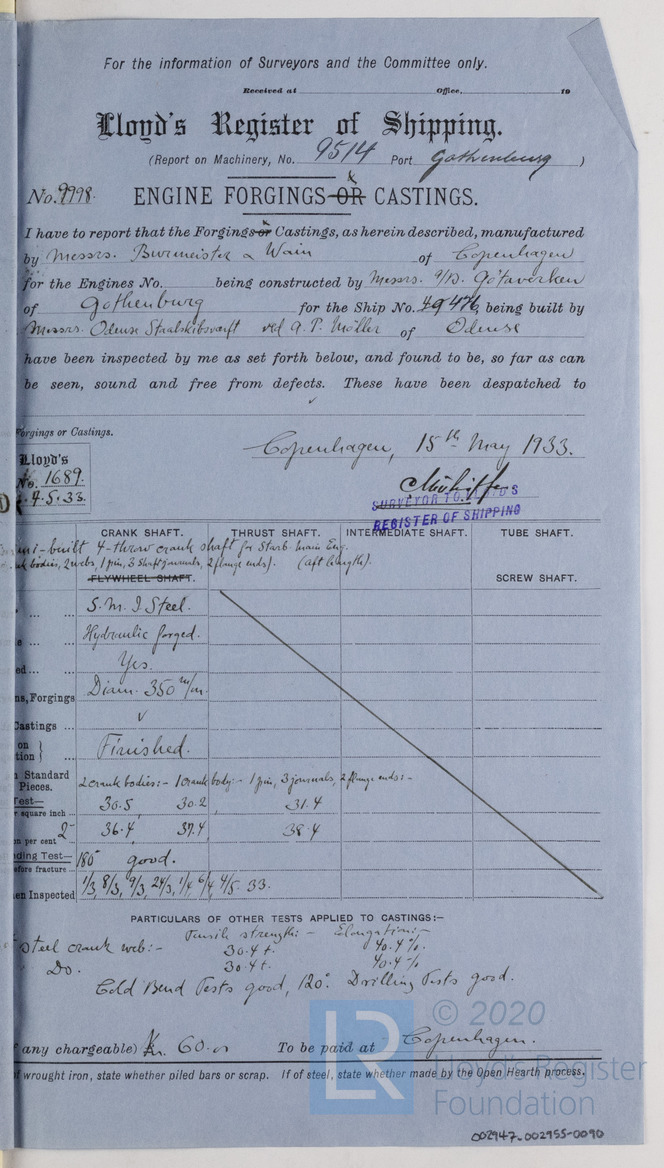 For the information of Surveyors and the Committee only.
Received at Office, 19
Lloyd's Register of Shipping.
(Report on Machinery, No. 9514 Port Gothenburg )
No. 9998. ENGINE FORGINGS OR & CASTINGS.
I have to report that the Forgings or & Castings, as herein described, manufactured
by Messrs. Burmeister & Wain of Copenhagen
for the Engines No. being constructed by Messrs. A/B. Götaverken
of Gothenburg for the Ship No. 49476, being built by
Messrs. Odense Staalskibsværft ved A. P. Möller of Odense
have been inspected by me as set forth below, and found to be, so far as can
be seen, sound and free from defects. These have been despatched to
Forgings or Castings.
Copenhagen, 15th May 1933.
Lloyd's
No. 1689.
4.5.33.
SURVEYOR TO LLOYD'S
REGISTER OF SHIPPING
CRANK SHAFT. THRUST SHAFT. INTERMEDIATE SHAFT. TUBE SHAFT.
-built 4-throw crank shaft for Starb. Main Eng.
bodies, 2 webs, 1 pin, 3 shaft journals, 2 flange ends). (aft length).
FLYWHEEL SHAFT. SCREW SHAFT.
S. M. I Steel.
Hydraulic forged.
ed Yes.
ns, Forgings Diam. 350 m/m.
Castings ✓
on
tion Finished.
Standard
Pieces. 2 crank bodies:- 1 crank body:- 1 pin, 3 journals, 2 flange ends:-
Test—
r square inch 30.5, 30.2 31.4
2" 36.4, 37.4 38.4
n per cent
ding Test— 180° good.
efore fracture
en Inspected 1/3, 8/3, 9/3, 24/3, 1/4, 6/4, 4/5. 33.
PARTICULARS OF OTHER TESTS APPLIED TO CASTINGS:—
Tensile strength:- Elongation:-
Steel crank web:- 30.4 t. 40.4 %.
Do. 30.4 t. 40.4 %
Cold Bend Tests good, 120°. Drilling Tests good.
any chargeable) Kr. 60.00 To be paid at Copenhagen.
f wrought iron, state whether piled bars or scrap. If of steel, state whether made by the Open Hearth process.
LR © 2020
Lloyd's Register
Foundation
002947-002955-0090